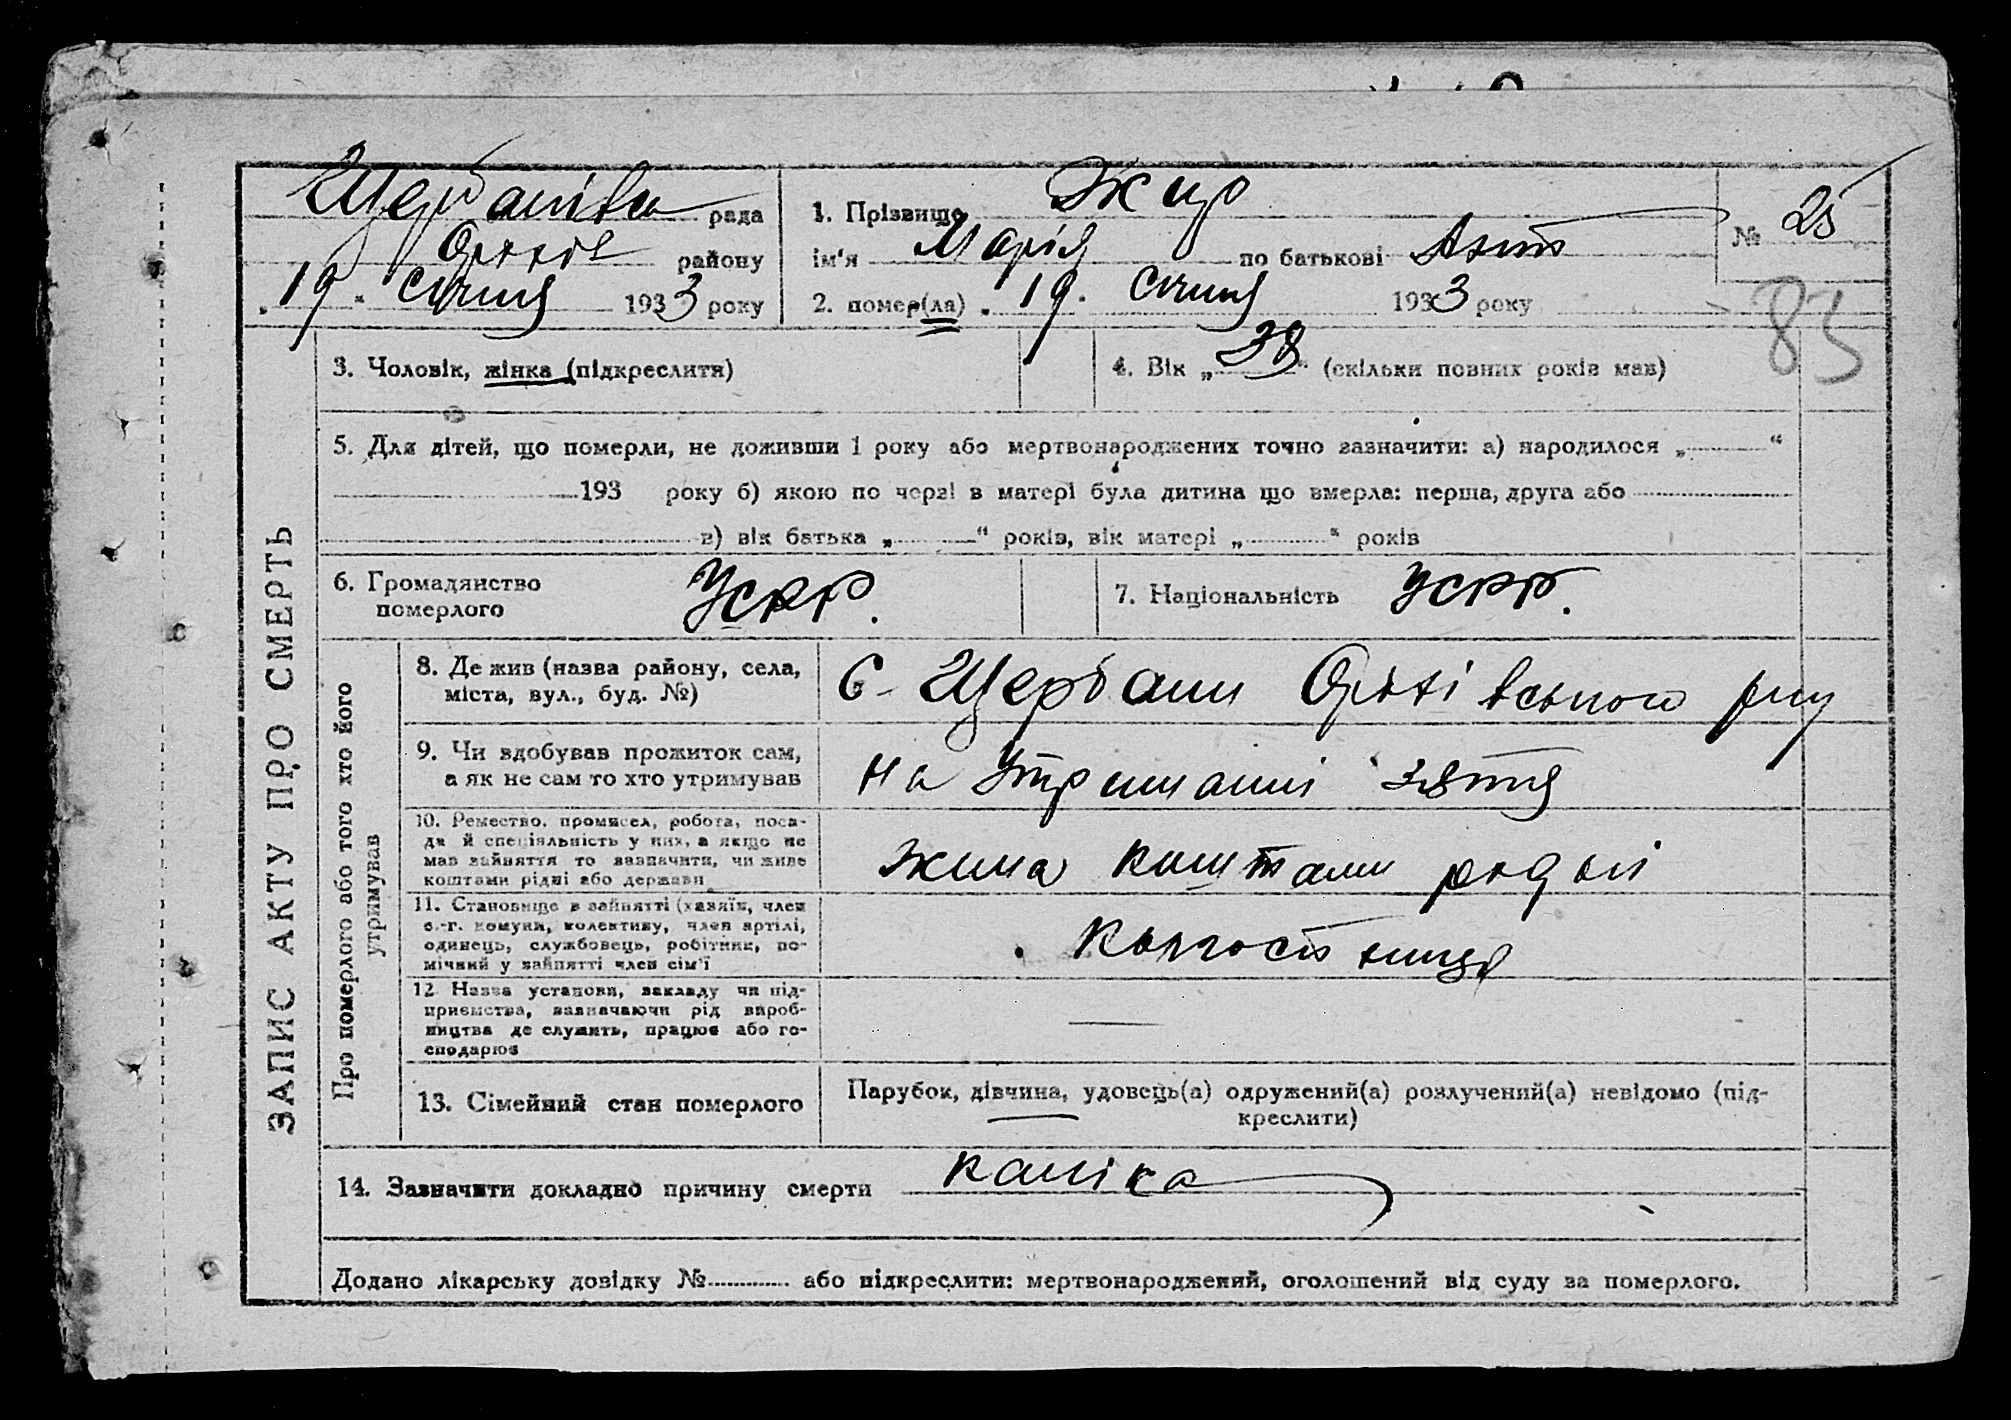 рада
району
19 січня 1933 року
1. Прізвище
ім'я Марія по батькові Ант
2. помер(ла) 19. січня 1933 року
№ 25
83
ЗАПИС АКТУ ПРО СМЕРТЬ
3. Чоловік, жінка (підкреслити)
4. Вік „38“ (скільки повних років мав)
5. Для дітей, що померли, не доживши 1 року або мертвонароджених точно зазначити: а) народилося „ “
193 року б) якою по черзі в матері була дитина що вмерла: перша, друга або
в) вік батька „ “ років, вік матері „ “ років
6. Громадянство
померлого
УСРР.
7. Національність УСРР.
Про померлого або того хто його
утримував
8. Де жив (назва району, села,
міста, вул., буд. №)
С. Щербани
9. Чи здобував прожиток сам,
а як не сам то хто утримував
на утриманні зятя
10. Ремество, промисел, робота, поса-
да й спеціяльність у них, а якщо не
мав зайняття то зазначити, чи живе
коштами рідні або держави
жила коштами рідні
11. Становище в зайнятті (хазяїн, член
с.-г. комуни, колективу, член артілі,
одинець, службовець, робітник, по-
мічний у зайнятті член сім'ї
колгоспниця
12 Назва установи, закладу чи під-
приємства, зазначаючи рід вироб-
ництва де служить, працює або го-
сподарює
—
13. Сімейний стан померлого
Парубок, дівчина, удовець(а) одружений(а) розлучений(а) невідомо (під-
креслити)
14. Зазначити докладно причину смерти каліка
Додано лікарську довідку № або підкреслити: мертвонароджений, оголошений від суду за померлого.